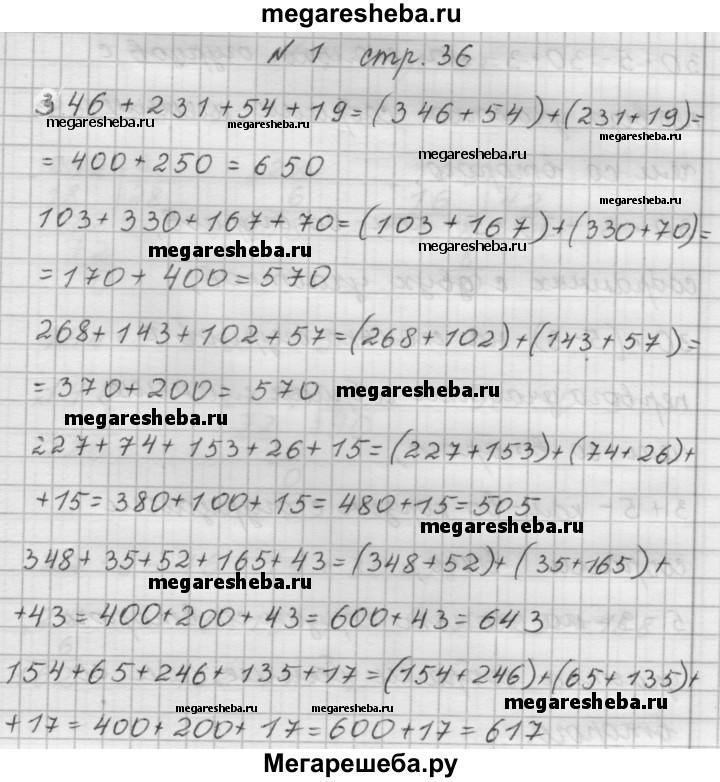 megaresheba.ru
N 1 стр. 36
346 + 231 + 54 + 19 = (346 + 54) + (231 + 19) =
megaresheba.ru megaresheba.ru megaresheba.ru
= 400 + 250 = 650
megaresheba.ru
megaresheba.ru
103 + 330 + 167 + 70 = (103 + 167) + (330 + 70) =
megaresheba.ru megaresheba.ru
= 170 + 400 = 570
268 + 143 + 102 + 57 = (268 + 102) + (143 + 57) =
= 370 + 200 = 570 megaresheba.ru
megaresheba.ru
227 + 74 + 153 + 26 + 15 = (227 + 153) + (74 + 26) +
+ 15 = 380 + 100 + 15 = 480 + 15 = 505
megaresheba.ru
348 + 35 + 52 + 165 + 43 = (348 + 52) + (35 + 165) +
megaresheba.ru
+ 43 = 400 + 200 + 43 = 600 + 43 = 643
154 + 65 + 246 + 135 + 17 = (154 + 246) + (65 + 135) +
megaresheba.ru
megaresheba.ru megaresheba.ru
+ 17 = 400 + 200 + 17 = 600 + 17 = 617
megaresheba.ru
Мегарешеба.ру